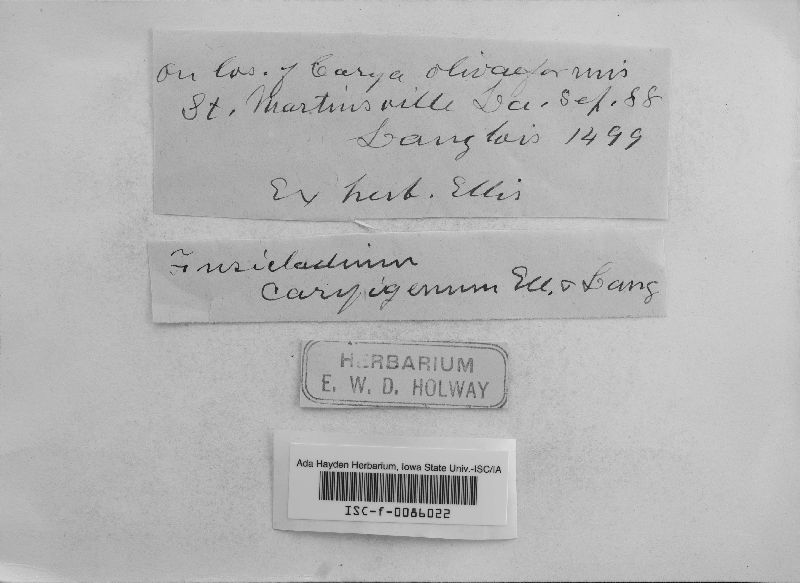 on lvs. of Carya olivaeformis
St. Martinsville La. Sep. 88
Langlois 1499
Ex herb. Ellis
Fusicladium
caryigenum Ell. & Lang
HERBARIUM
E. W. D. HOLWAY
Ada Hayden Herbarium, Iowa State Univ.-ISC/IA
ISC-f-0086022